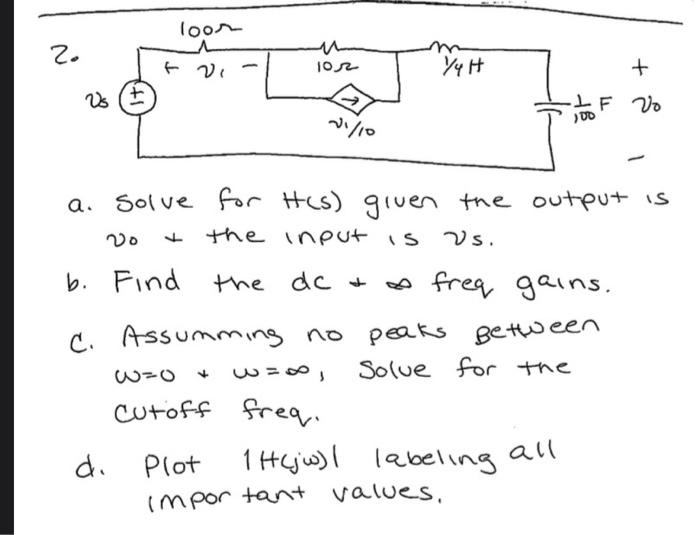 100Ω
2.
+ v₁ -
10Ω
1/4 H
+
vs
±
1/100 F
vo
v₁/10
-
a. Solve for H(s) given the output is
vo + the input is vs.
b. Find the dc + ∞ freq gains.
c. Assumming no peaks Between
ω=0 + ω=∞, Solve for the
cutoff freq.
d. Plot |H(jω)| labeling all
important values.